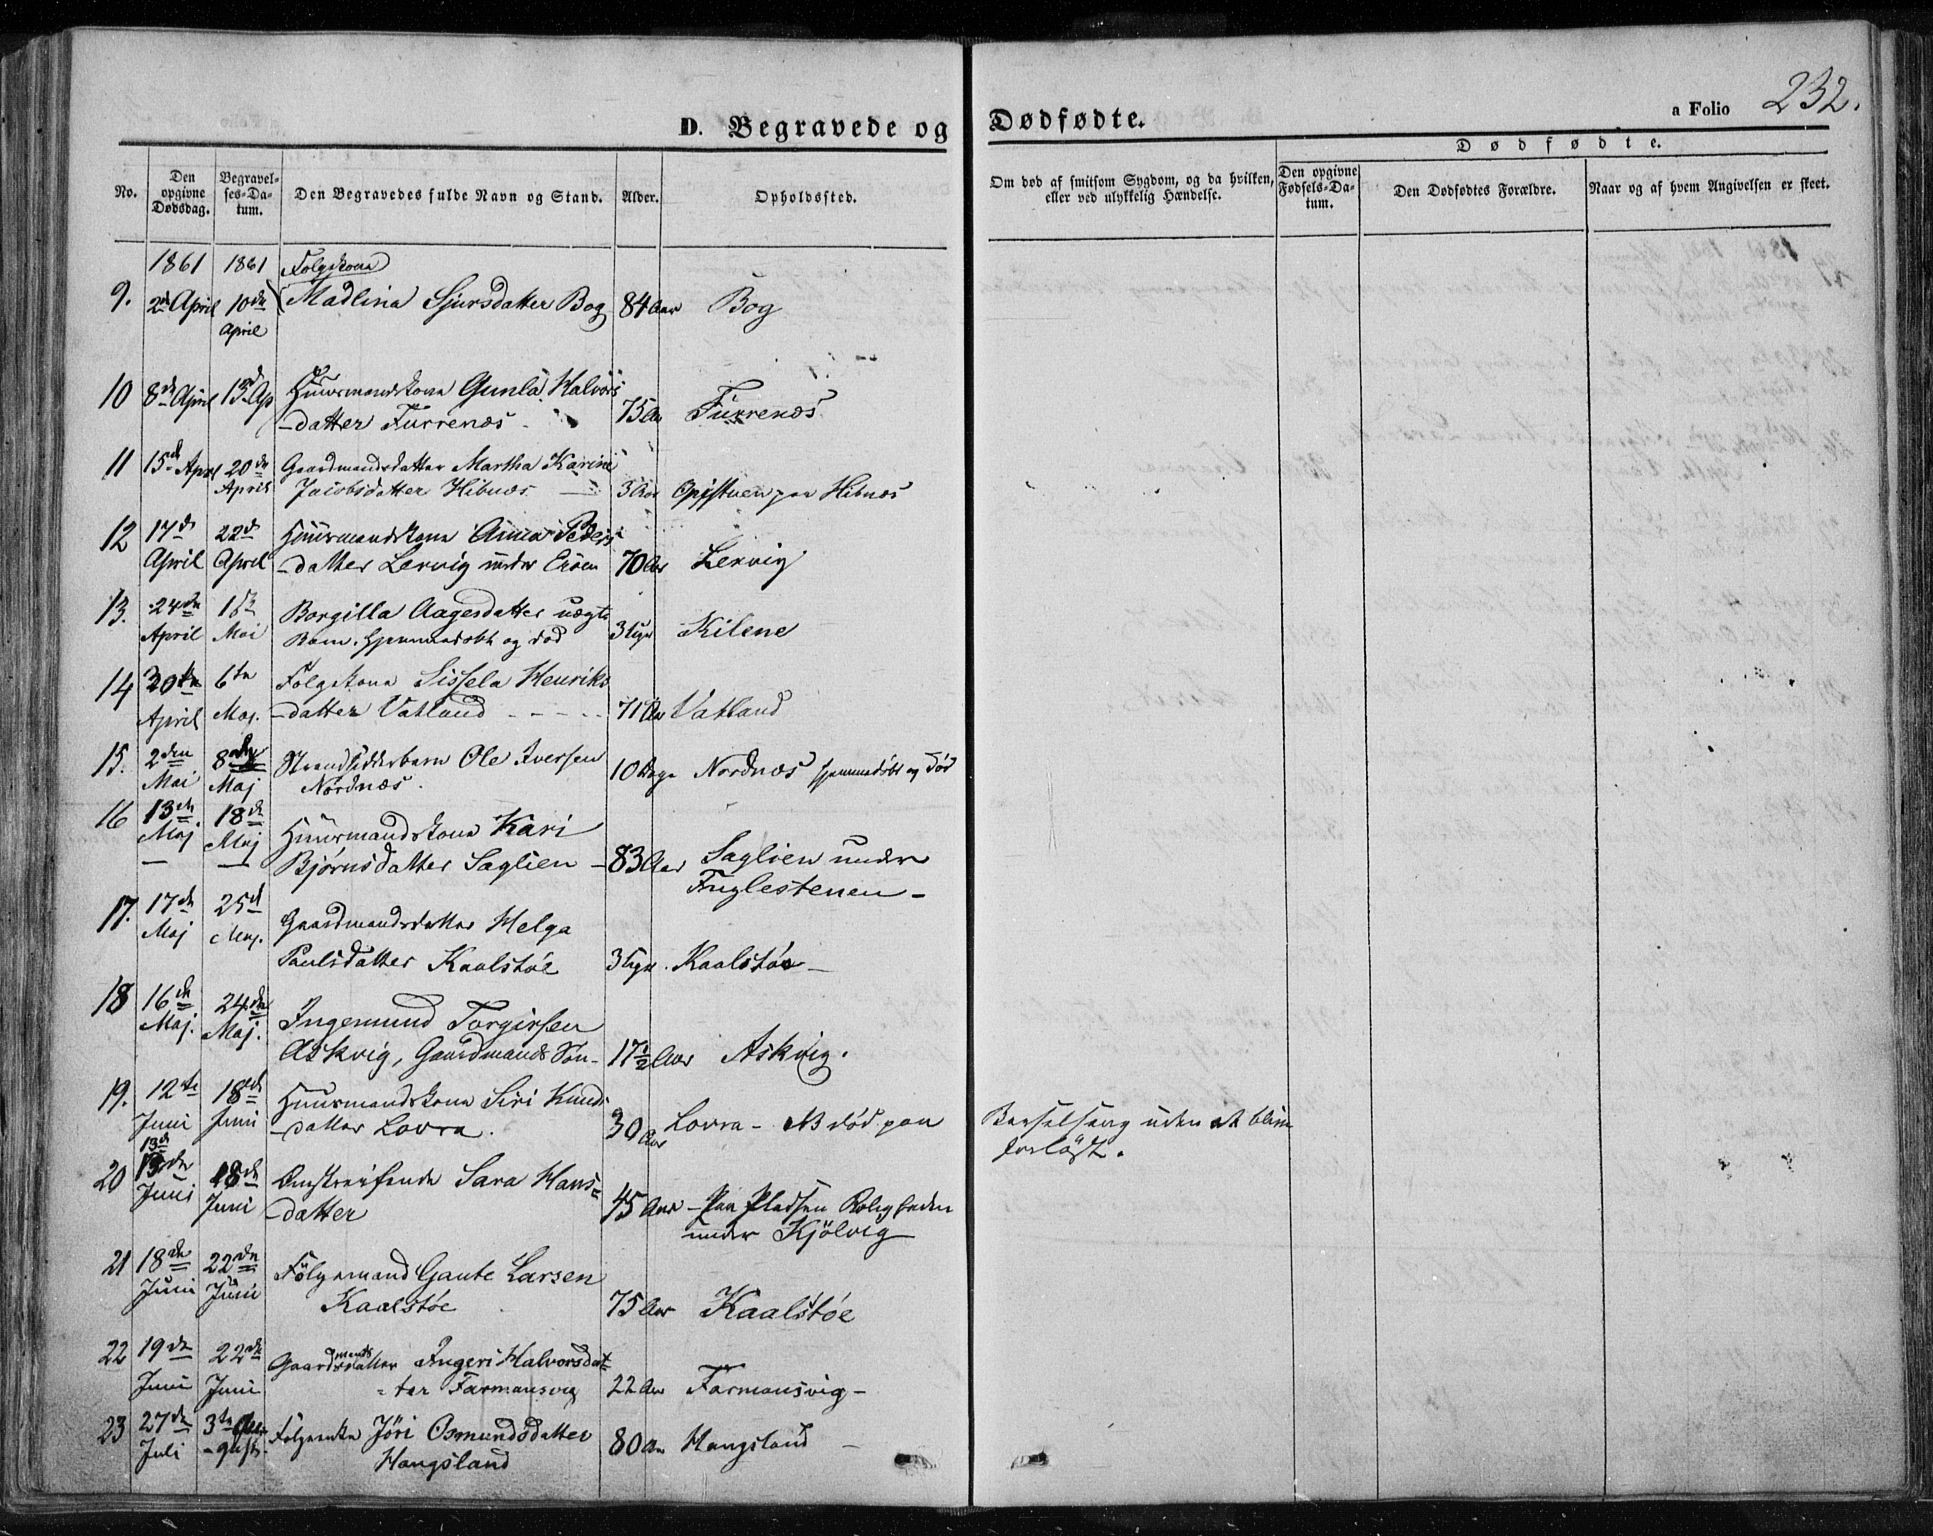 232.
a Folio
D. Begravede og Dødfødte.
No.
Den opgivne Dødsdag.
Begravelses-Datum.
Den Begravedes fulde Navn og Stand.
Alder.
Opholdssted.
Om død af smitsom Sygdom, og da hvilken, eller ved ulykkelig Hændelse.
Dødfødte.
Den opgivne Fødsels-Datum.
Den Dødfødtes Forældre.
Naar og af hvem Angivelsen er skeet.
1861 1861 Folgekone
9. 2den April 10de April Madlina Sjursdatter Bog 84 Aar Bog
10 8de April 13d Ap Huusmandskone Gunla Halvors
-datter Furrenæs 75 Aar Furrenæs
11 15de April 20de April Gaardmandsdatter Martha Karine
Jacobsdatter Hibnæs 3 Aar paa Hibnæs
12 17de April 22de April Huusmandskone Anna Peders
-datter Lervig under 70 Aar Lervig
13. 24de April 1ste Mai Borgilla Aagesdatter uægte
Barn. hjemmedøbt og død 3 Uger Kilene
14 30te April 6te Maj. Folgekone Sissela Henriks
-datter Vatland 71 Aar Vatland
15. 2den Mai 8de Maj Strandsidderbarn Ole Iversen
Nordnæs. 10 Dage Nordnæs hjemmedøbt og død
16 13de Maj 18de Maj Huusmandskone Kari
Bjørnsdatter Saglien - 83 Aar Saglien under
Fuglestenen -
17. 17de Maj 25d Maj. Gaardmandsdatter Helga
Paulsdatter Kaalstøe 3 Uger. Kaalstøe -
18 16de Maj. 24de Maj. Ingemund Torgirsen
Askvig, Gaardmands Søn- 17 1/2 Aar Askvig.
19. 12te Juni 18de Juni Huusmandskone Siri Knuds
-datter Lovra. 30 Aar Lovra - NB død paa Barselseng uden at blive
forløst.
20 13de Juni 18de Juni Omstreifende Sara Hans=
-datter 45 Aar - Paa Pladsen Roligheden
under Kjölvig
21 18de Juni 22de Juni Fölgemand Gaute Larsen
Kaalstøe 75 Aar Kaalstøe
22 19de Juni 22de Juni Gaardmandsdatter Ingeri Halvorsdat
=ter Farmansvig 22 Aar Farmansvig -
23 27de Juli 3te Au-
-gust. Folgeenke Jöri Osmundsdatter
Hangsland 80 Aar Hangsland -